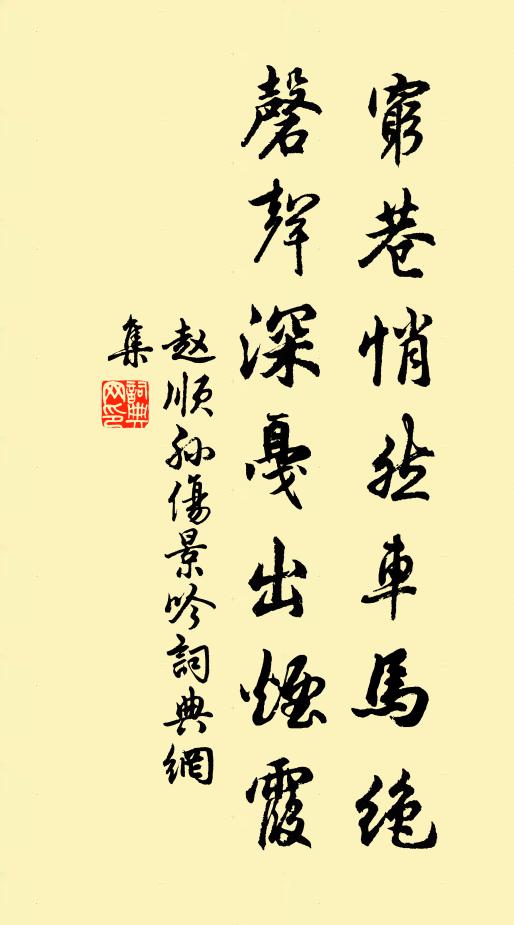 窮巷悄然車馬絶
磬聲深戞出煙霞
赵順孙傷景吟詞典網
集
詞典
网印